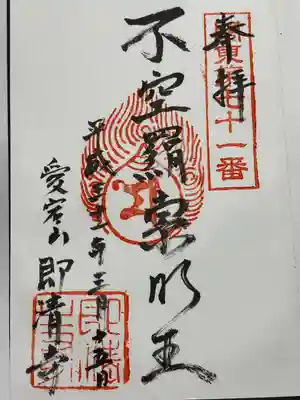 奉拝
関東第七十一番
不空羂索明王
平成三十一年三月十五日
愛宕山
即清寺